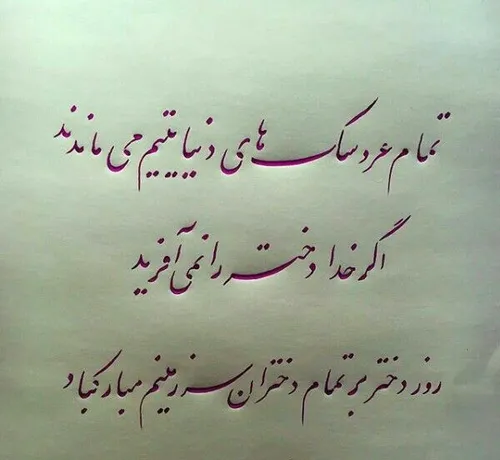 تمام عروسک های دنیا یتیم می ماندند
اگر خدا دختر را نمی آفرید
روز دختر بر تمام دختران سرزمینم مبارکباد